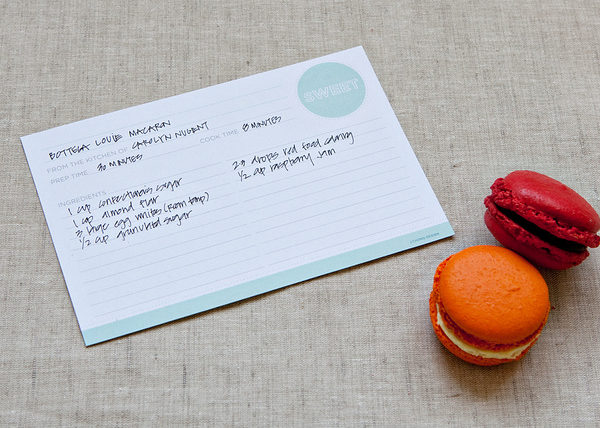 SWEET
BOTTEGA LOUIE MACARON
FROM THE KITCHEN OF CAROLYN NUGENT
PREP TIME 30 MINUTES
COOK TIME 8 MINUTES
INGREDIENTS
1 cup confectioners sugar
1 cup almond flour
3 large egg whites (room temp)
1/2 cup granulated sugar
2-3 drops red food coloring
1/2 cup raspberry jam